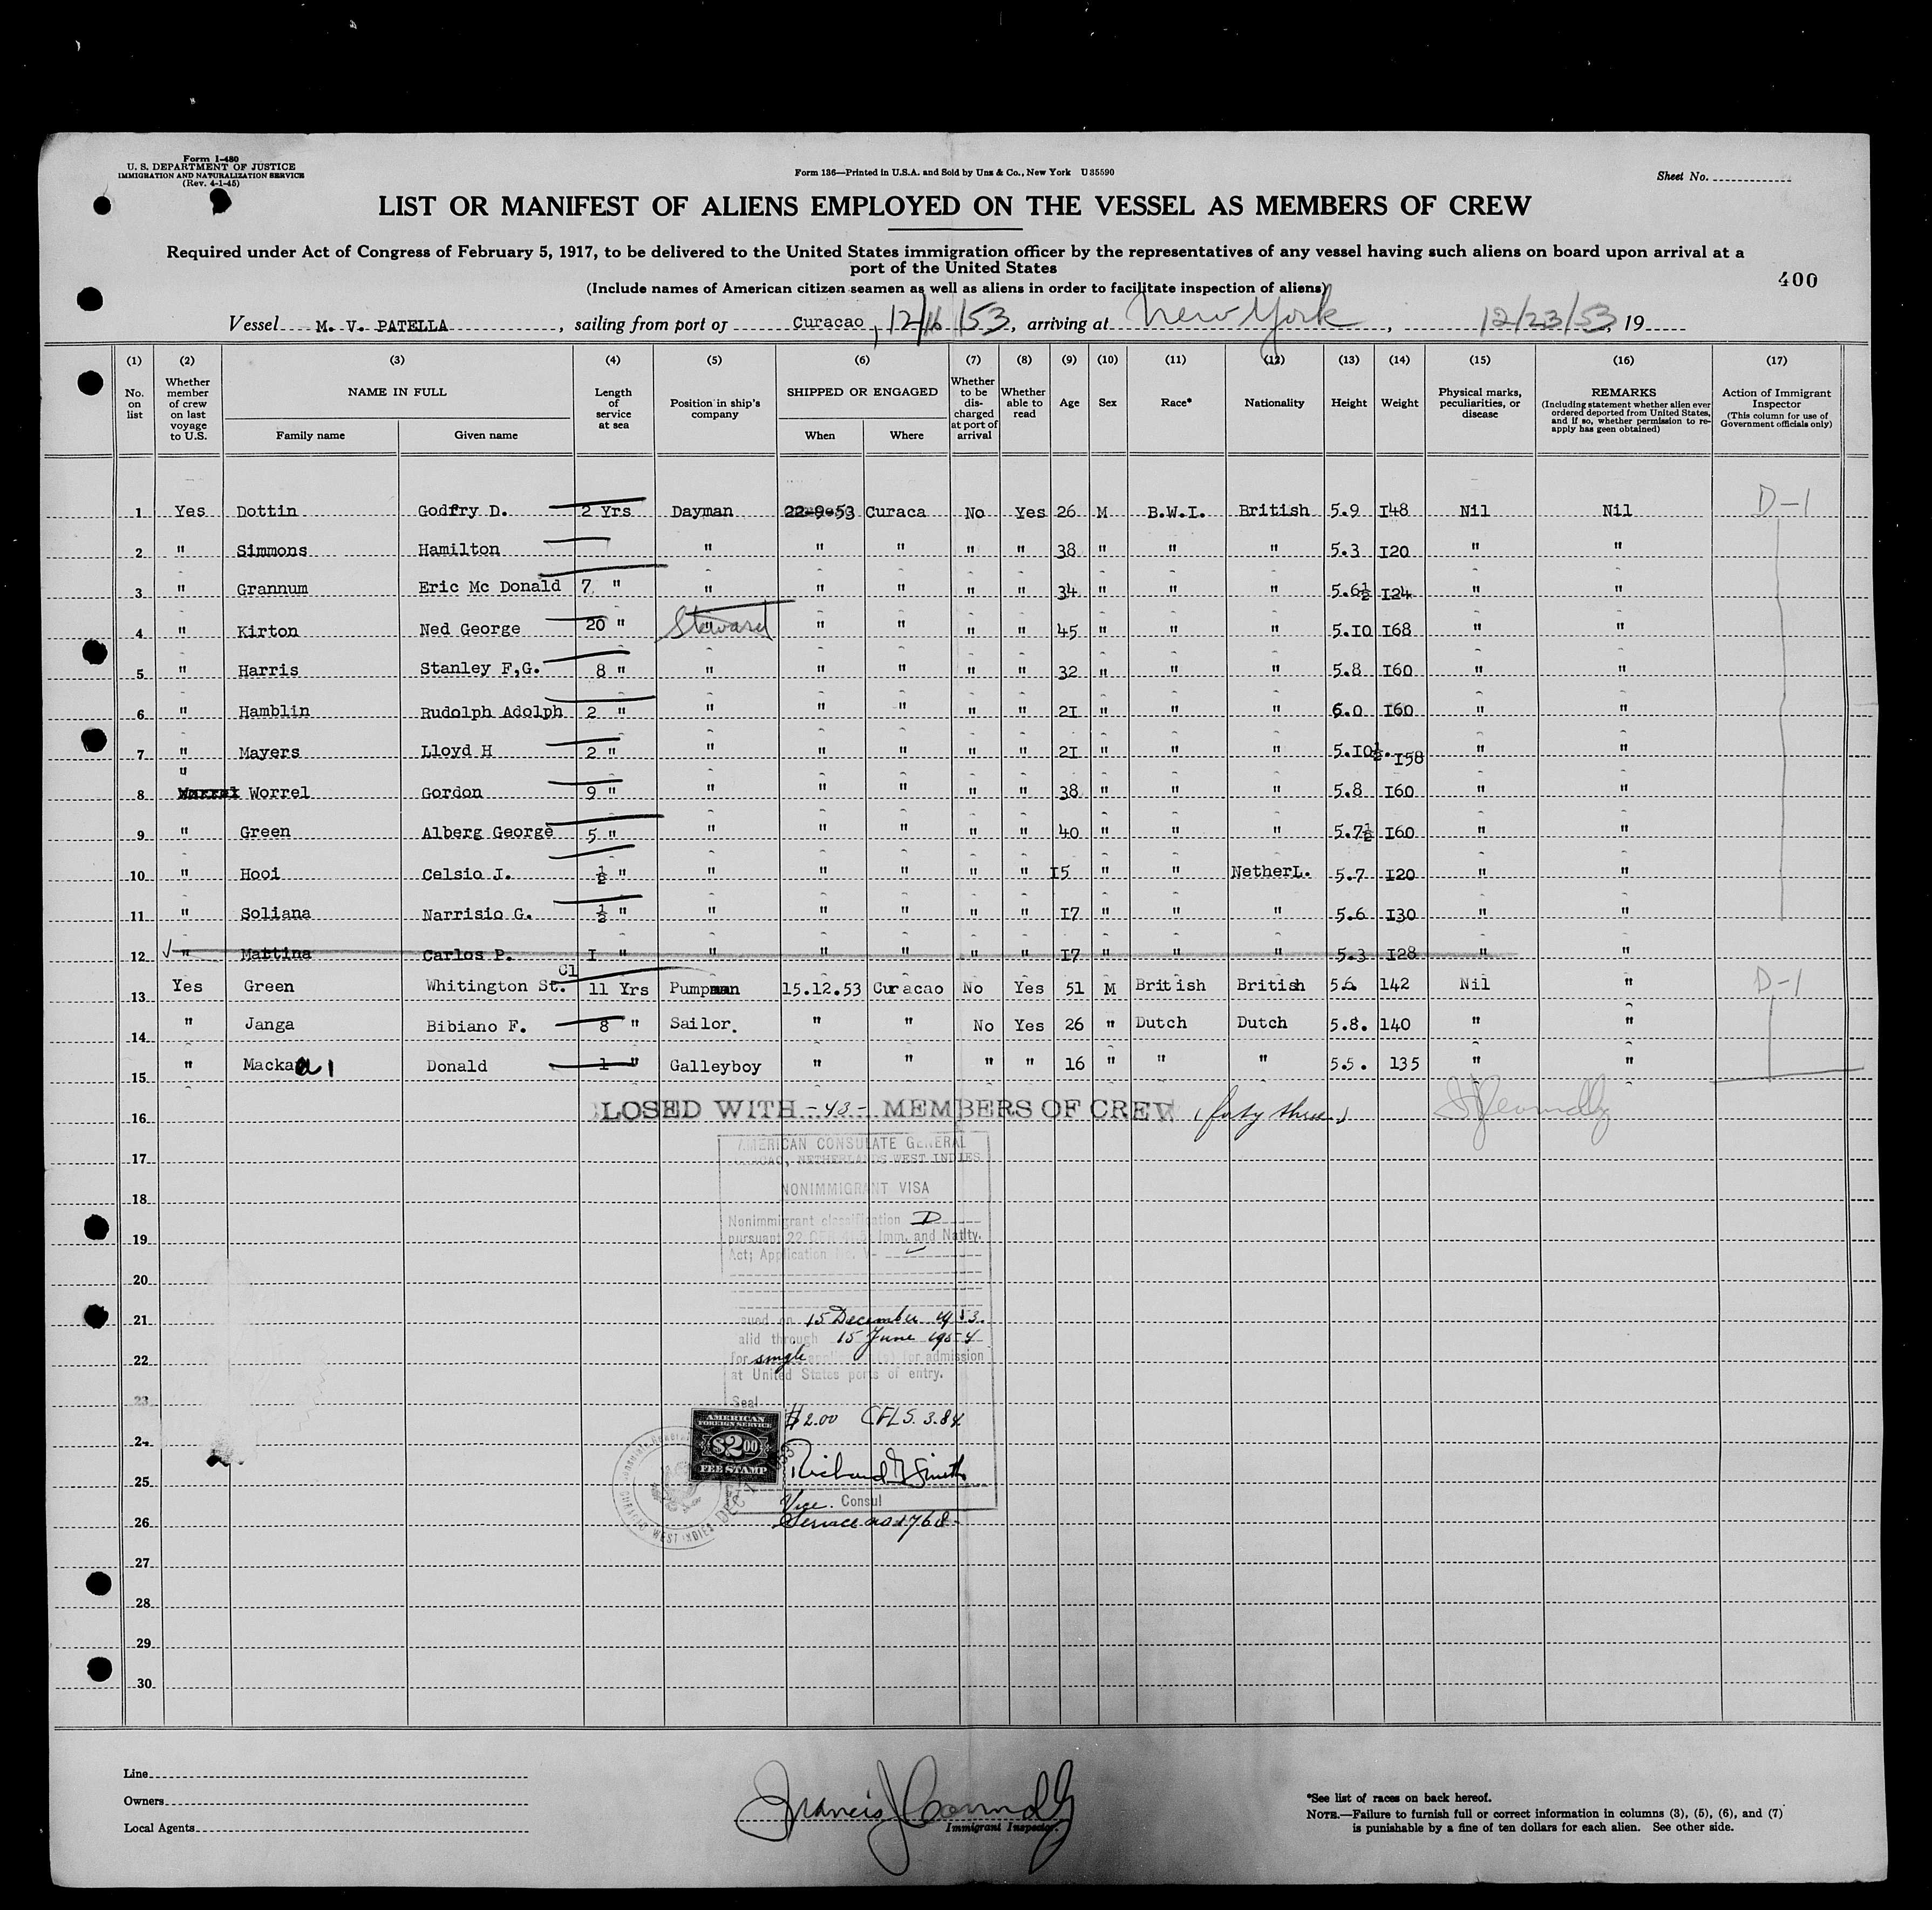 Form I-480
U. S. DEPARTMENT OF JUSTICE
IMMIGRATION AND NATURALIZATION SERVICE
(Rev. 4-1-45)
Form 136—Printed in U.S.A. and Sold by Unz & Co., New York U 35590
Sheet No.
LIST OR MANIFEST OF ALIENS EMPLOYED ON THE VESSEL AS MEMBERS OF CREW
Required under Act of Congress of February 5, 1917, to be delivered to the United States immigration officer by the representatives of any vessel having such aliens on board upon arrival at a
port of the United States
400
(Include names of American citizen seamen as well as aliens in order to facilitate inspection of aliens)
Vessel M. V. PATELLA, sailing from port of Curacao, 12/16/53, arriving at New York, 12/23/53, 19
(1) (2) (3) (4) (5) (6) (7) (8) (9) (10) (11) (12) (13) (14) (15) (16) (17)
No. on list
Whether member of crew on last voyage to U.S.
NAME IN FULL
Family name Given name
Length of service at sea
Position in ship's company
SHIPPED OR ENGAGED
When Where
Whether to be discharged at port of arrival
Whether able to read
Age
Sex
Race*
Nationality
Height
Weight
Physical marks, peculiarities, or disease
REMARKS
(Including statement whether alien ever ordered deported from United States, and if so, whether permission to re-apply has geen obtained)
Action of Immigrant Inspector
(This column for use of Government officials only)
1 Yes Dottin Godfry D. 2 Yrs Dayman 22-9-53 Curaca No Yes 26 M B.W.I. British 5.9 I48 Nil Nil D-1
2 " Simmons Hamilton " " " " " 38 " " " 5.3 I20 " "
3 " Grannum Eric Mc Donald 7 " " " " " " 34 " " " 5.6½ I24 " "
4 " Kirton Ned George 20 " " Steward " " " " 45 " " " 5.I0 I68 " "
5 " Harris Stanley F,G. 8 " " " " " " 32 " " " 5.8 I60 " "
6 " Hamblin Rudolph Adolph 2 " " " " " " 2I " " " 6.0 I60 " "
7 " Mayers Lloyd H 2 " " " " " " 2I " " " 5.I0½. I58 " "
8 " Worrel Gordon 9 " " " " " " 38 " " " 5.8 I60 " "
9 " Green Alberg George 5 " " " " " " 40 " " " 5.7½ I60 " "
10 " Hooi Celsio J. ½ " " " " " " I5 " " NetherL. 5.7 I20 " "
11 " Soliana Narrisio G. ½ " " " " " " I7 " " " 5.6 I30 " "
12 " Mattina Carlos P. I " " " " " " I7 " " " 5.3 I28 " "
13 Yes Green Whitington St. Cl 11 Yrs Pumpman 15.12.53 Curacao No Yes 51 M British British 5.6. 142 Nil " D-1
14 " Janga Bibiano F. 8 " Sailor. " " No Yes 26 " Dutch Dutch 5.8. 140 " "
15 " Mackaai Donald 1 " Galleyboy " " " " 16 " " " 5.5. 135 " "
16 CLOSED WITH -43- MEMBERS OF CREW (forty three)
17
18
19
20
21
22
23
24
25
26
27
28
29
30
AMERICAN CONSULATE GENERAL
CURACAO, NETHERLANDS WEST INDIES
NONIMMIGRANT VISA
Nonimmigrant classification D
pursuant 22 CFR Imm. and Natlty.
Act; Application No. V-
Issued on 15 December 1953.
Valid through 15 June 1954
for single application(s) for admission
at United States ports of entry.
Seal
$2.00 CFLS. 3.84
AMERICAN
FOREIGN SERVICE
$2.00
FEE STAMP
Richard Smith
Vice Consul
Service no 1768
Line
Owners
Local Agents
Francis J Connolly
Immigrant Inspector.
*See list of races on back hereof.
NOTE.—Failure to furnish full or correct information in columns (3), (5), (6), and (7)
is punishable by a fine of ten dollars for each alien. See other side.